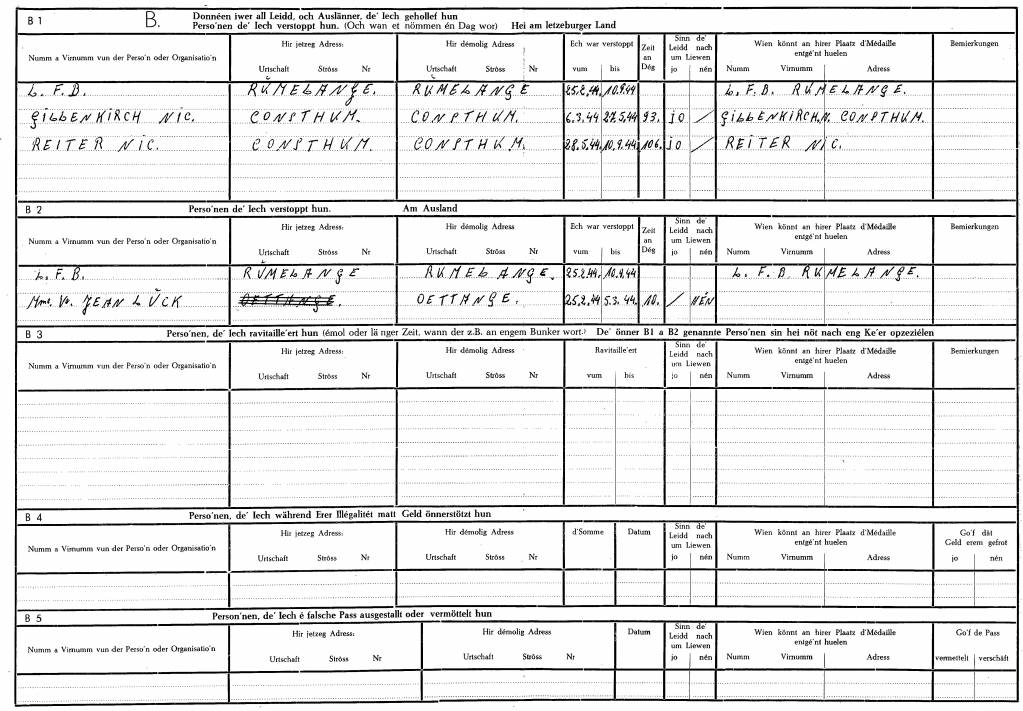 B 1 B. Donnéen iwer all Leidd, och Auslänner, de' Iech gehollef hun
Perso'nen de' Iech verstoppt hun. (Och wan et nömmen én Dag wor) Hei am letzeburger Land
Numm a Virnumm vun der Perso'n oder Organisatio'n Hir jetzeg Adress: Urtschaft Ströss Nr Hir démolig Adress Urtschaft Ströss Nr Ech war verstoppt vum bis Zeit an Dég Sinn de' Leidd nach um Liewen jo nén Wien könnt an hirer Plaatz d'Médaille entgé'nt huelen Numm Virnumm Adress Bemierkungen
L. F. B. RŬMELANGE. RŬMELANGE 25.2.44. 10.9.44 L. F. B. RŬMELANGE.
GILLENKIRCH NIC. CONSTHUM. CONSTHUM. 6.3.44 27.5.44 93. jo / GILLENKIRCH.N. CONSTHUM.
REITER NIC. CONSTHUM. CONSTHUM. 28.5.44. 10.9.44 106. jo / REITER NIC.
B 2 Perso'nen de' Iech verstoppt hun. Am Ausland
Numm a Virnumm vun der Perso'n oder Organisatio'n Hir jetzeg Adress: Urtschaft Ströss Nr Hir démolig Adress Urtschaft Ströss Nr Ech war verstoppt vum bis Zeit an Dég Sinn de' Leidd nach um Liewen jo nén Wien könnt an hirer Plaatz d'Médaille entgé'nt huelen Numm Virnumm Adress Bemierkungen
L. F. B. RŬMELANGE RŬMELANGE. 25.2.44. 10.9.44 L. F. B RUMELANGE.
Mme. Vv. JEAN LŬCK OETTANGE. OETTANGE. 25.2.44 5.3.44. 10. / NÉN
B 3 Perso'nen, de' Iech ravitaille'ert hun (émol oder lä nger Zeit, wann der z.B. an engem Bunker wort.) De' önner B1 a B2 genannte Perso'nen sin hei nöt nach eng Ke'er opzeziélen
Numm a Virnumm vun der Perso'n oder Organisatio'n Hir jetzeg Adress: Urtschaft Ströss Nr Hir démolig Adress Urtschaft Ströss Nr Ravitaille'ert vum bis Sinn de' Leidd nach um Liewen jo nén Wien könnt an hirer Plaatz d'Médaille entgé'nt huelen Numm Virnumm Adress Bemierkungen
B 4 Perso'nen, de' Iech während Erer Illégalitét matt Geld önnerstötzt hun
Numm a Virnumm vun der Perso'n oder Organisatio'n Hir jetzeg Adress: Urtschaft Ströss Nr Hir démolig Adress Urtschaft Ströss Nr d'Somme Datum Sinn de' Leidd nach um Liewen jo nén Wien könnt an hirer Plaatz d'Médaille entgé'nt huelen Numm Virnumm Adress Go'f dât Geld erem gefrot jo nén
B 5 Person'nen, de' Iech é falsche Pass ausgestallt oder vermöttelt hun
Numm a Virnumm vun der Perso'n oder Organisatio'n Hir jetzeg Adress: Urtschaft Ströss Nr Hir démolig Adress Urtschaft Ströss Nr Datum Sinn de' Leidd nach um Liewen jo nén Wien könnt an hirer Plaatz d'Médaille entgé'nt huelen Numm Virnumm Adress Go'f de Pass vermettelt verschäft